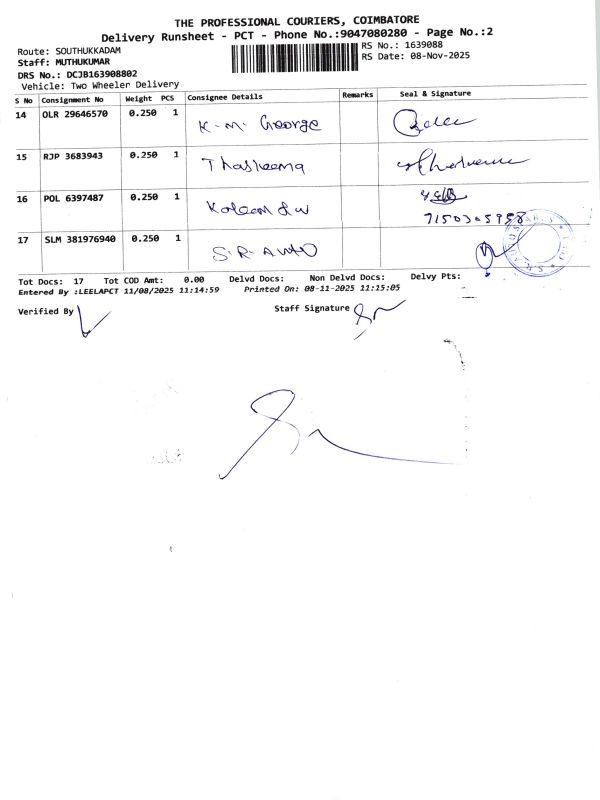 THE PROFESSIONAL COURIERS, COIMBATORE
Delivery Runsheet - PCT - Phone No.:9047080280 - Page No.:2
Route: SOUTHUKKADAM
RS No.: 1639088
Staff: MUTHUKUMAR
RS Date: 08-Nov-2025
DRS No.: DCJB163908802
Vehicle: Two Wheeler Delivery
S No Consignment No Weight PCS Consignee Details Remarks Seal & Signature
14 OLR 29646570 0.250 1 K.M. George
15 RJP 3683943 0.250 1 Thasleema
16 POL 6397487 0.250 1
7150305958
17 SLM 381976940 0.250 1 S.R. AUTO
Tot Docs: 17 Tot COD Amt: 0.00 Delvd Docs: Non Delvd Docs: Delvy Pts:
Entered By :LEELAPCT 11/08/2025 11:14:59 Printed On: 08-11-2025 11:15:05
Verified By
Staff Signature